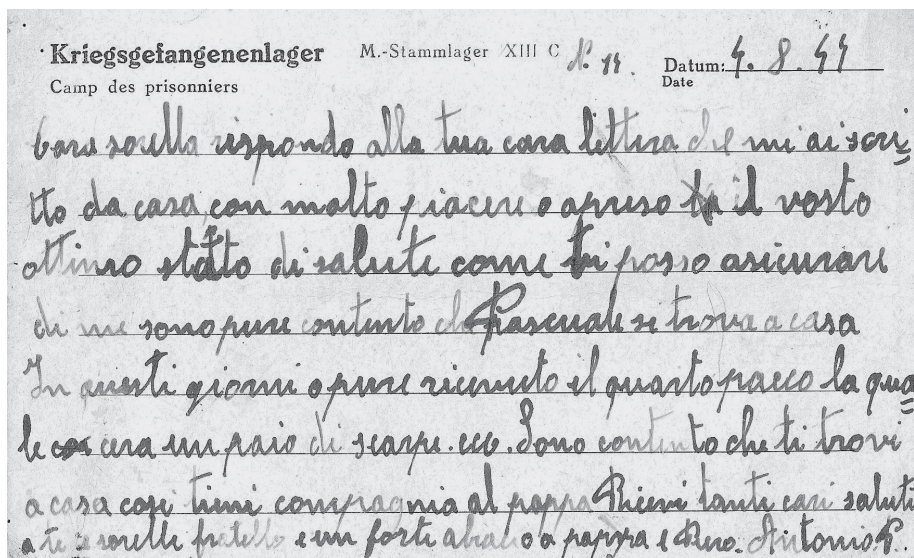 Kriegsgefangenenlager M.-Stammlager XIII C N. 11. Datum: 4. 8. 44
Camp des prisonniers Date
Cara sorella rispondo alla tua cara lettera che mi ai scri
tto da casa, con molto piacere o apreso il vosto
ottimo stato di salute come ti posso asicurare
di me sono pure contento che Pascuale se trova a casa
In questi giorni o pure ricevuto il quarto pacco la qua
le cera un paio di scarpe. ecc. Sono contento che ti trovi
a casa cosi tieni compagnia al pappa Ricevi tanti cari saluti
a te e sorelle fratello e un forte a pappa e Antonio P.